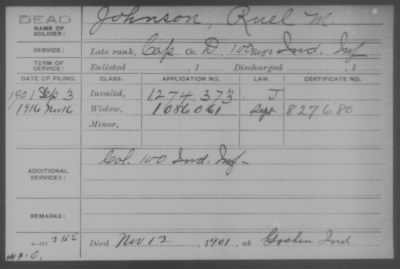 DEAD
NAME OF SOLDIER: Johnson, Ruel M
SERVICE: Late rank, Cap Co. D, 100 Reg't Ind. Inf
TERM OF SERVICE: Enlisted , 1 Discharged , 1
DATE OF FILING. CLASS. APPLICATION NO. LAW. CERTIFICATE NO.
1901 Sep 3 Invalid, 1274.373 J
1916 Nov 16 Widow, 1086061 Sept 827680
Minor,
ADDITIONAL SERVICES: Col. 100 Ind. Inf
REMARKS:
Died Nov 12, 1901, at Goshen Ind